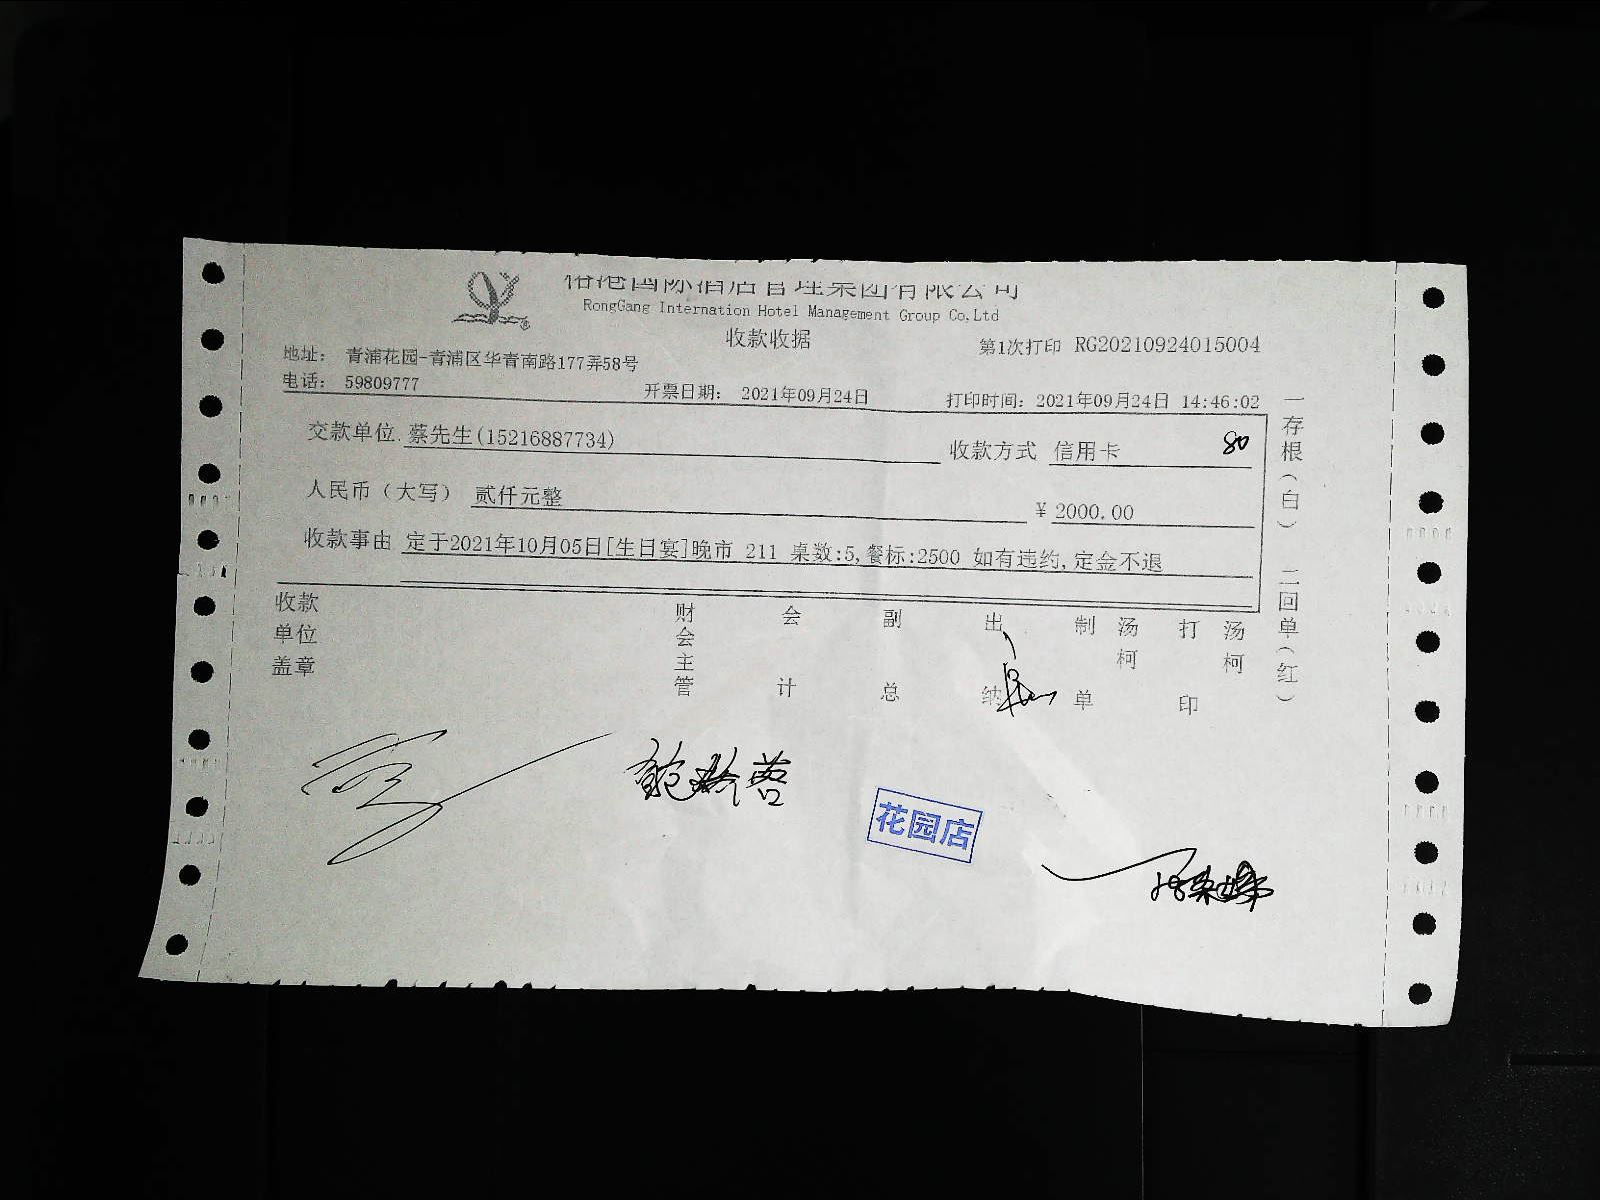 国际酒店管理集团有限公司
RongGang Internation Hotel Management Group Co,Ltd
收款收据
第1次打印 RG20210924015004
地址: 青浦花园-青浦区华青南路177弄58号
电话: 59809777
开票日期: 2021年09月24日
打印时间: 2021年09月24日 14:46:02
交款单位 蔡先生(15216887734)
收款方式 信用卡 80
人民币(大写) 贰仟元整
¥ 2000.00
收款事由 定于2021年10月05日[生日宴]晚市 211 桌数:5,餐标:2500 如有违约,定金不退
收款单位盖章
财会主管
会计
副总
出纳
制单
汤柯
打印
汤柯
一存根(白) 二回单(红)
花园店